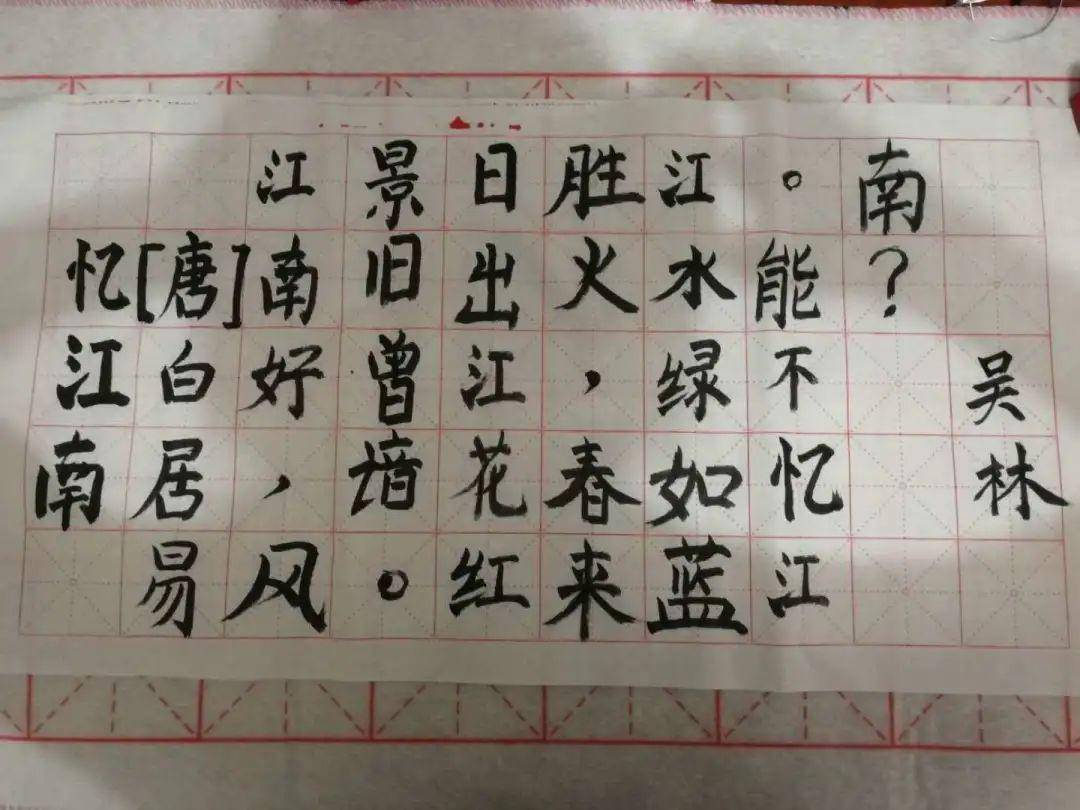 忆江南
[唐]白居易
江南好，风
景旧曾谙。
日出江花红
胜火，春来
江水绿如蓝
。能不忆江
南？
吴林